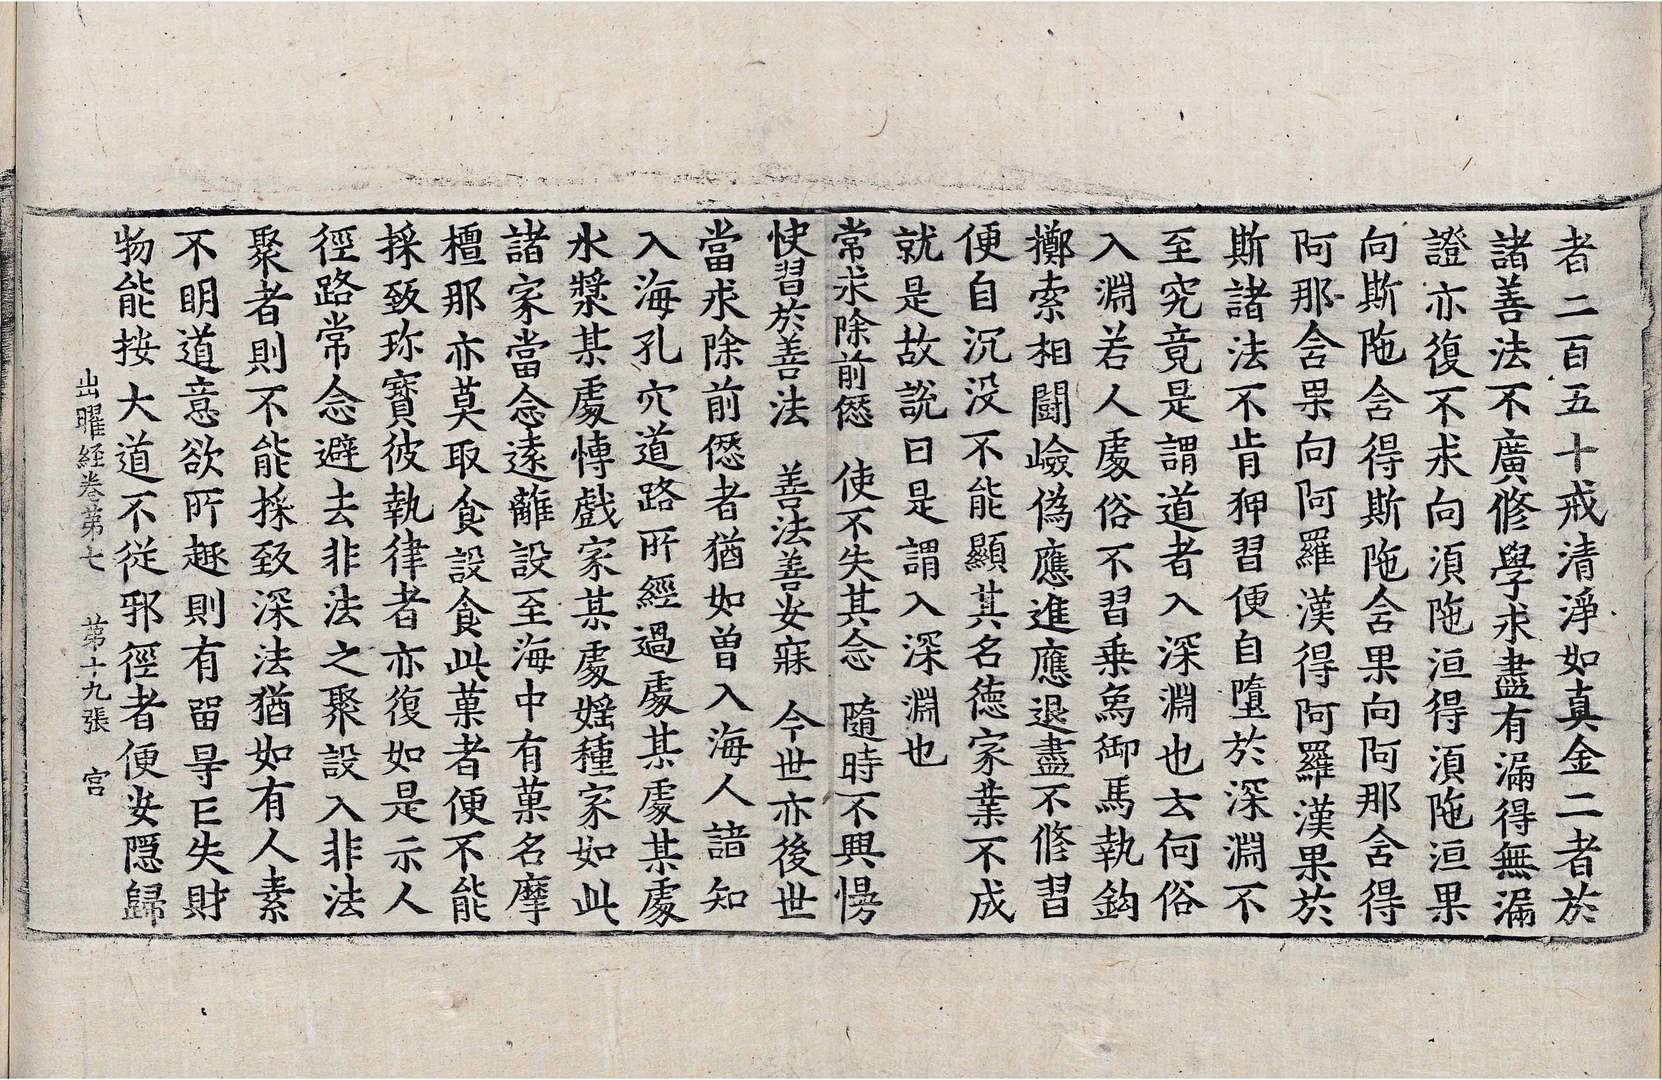 者二百五十戒清淨如真金二者於
諸善法不廣修學求盡有漏得無漏
證亦復不求向須陁洹得須陁洹果
向斯陁含得斯陁含果向阿那含得
阿那含果向阿羅漢得阿羅漢果於
斯諸法不肯狎習便自墮於深淵不
至究竟是謂道者入深淵也云何俗
入淵若人處俗不習乗象御馬執鈎
擲索相鬪嶮偽應進應退盡不修習
便自沉没不能顯其名德家業不成
就是故說曰是謂入深淵也
常求除前㥶　使不失其念　隨時不興慢
快習於善法　善法善安寐　今世亦後世
當求除前㥶者猶如曽入海人諳知
入海孔穴道路所經過處某處某處
水漿某處愽戲家某處婬種家如此
諸家當念遠離設至海中有菓名摩
檀那亦莫取食設食此菓者便不能
採致珎寳彼執律者亦復如是示人
徑路常念避去非法之聚設入非法
聚者則不能採致深法猶如有人素
不明道意欲所趣則有留㝵亡失財
物能按大道不從邪徑者便安隠歸
出曜経卷第七　第十九張　宫